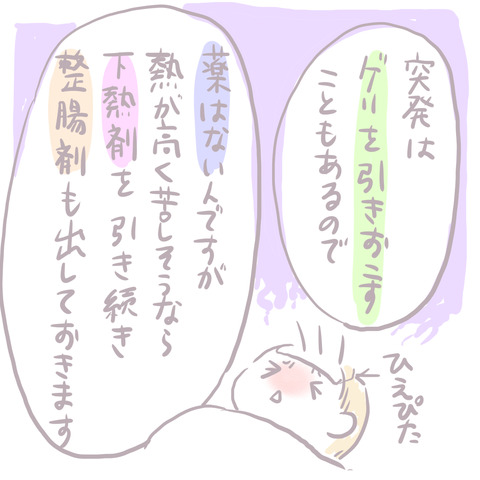 突発は
ゲリを引きおこす
こともあるので
薬はないんですが
熱が高く苦しそうなら
下熱剤を引き続き
整腸剤も出しておきます
ひえぴた